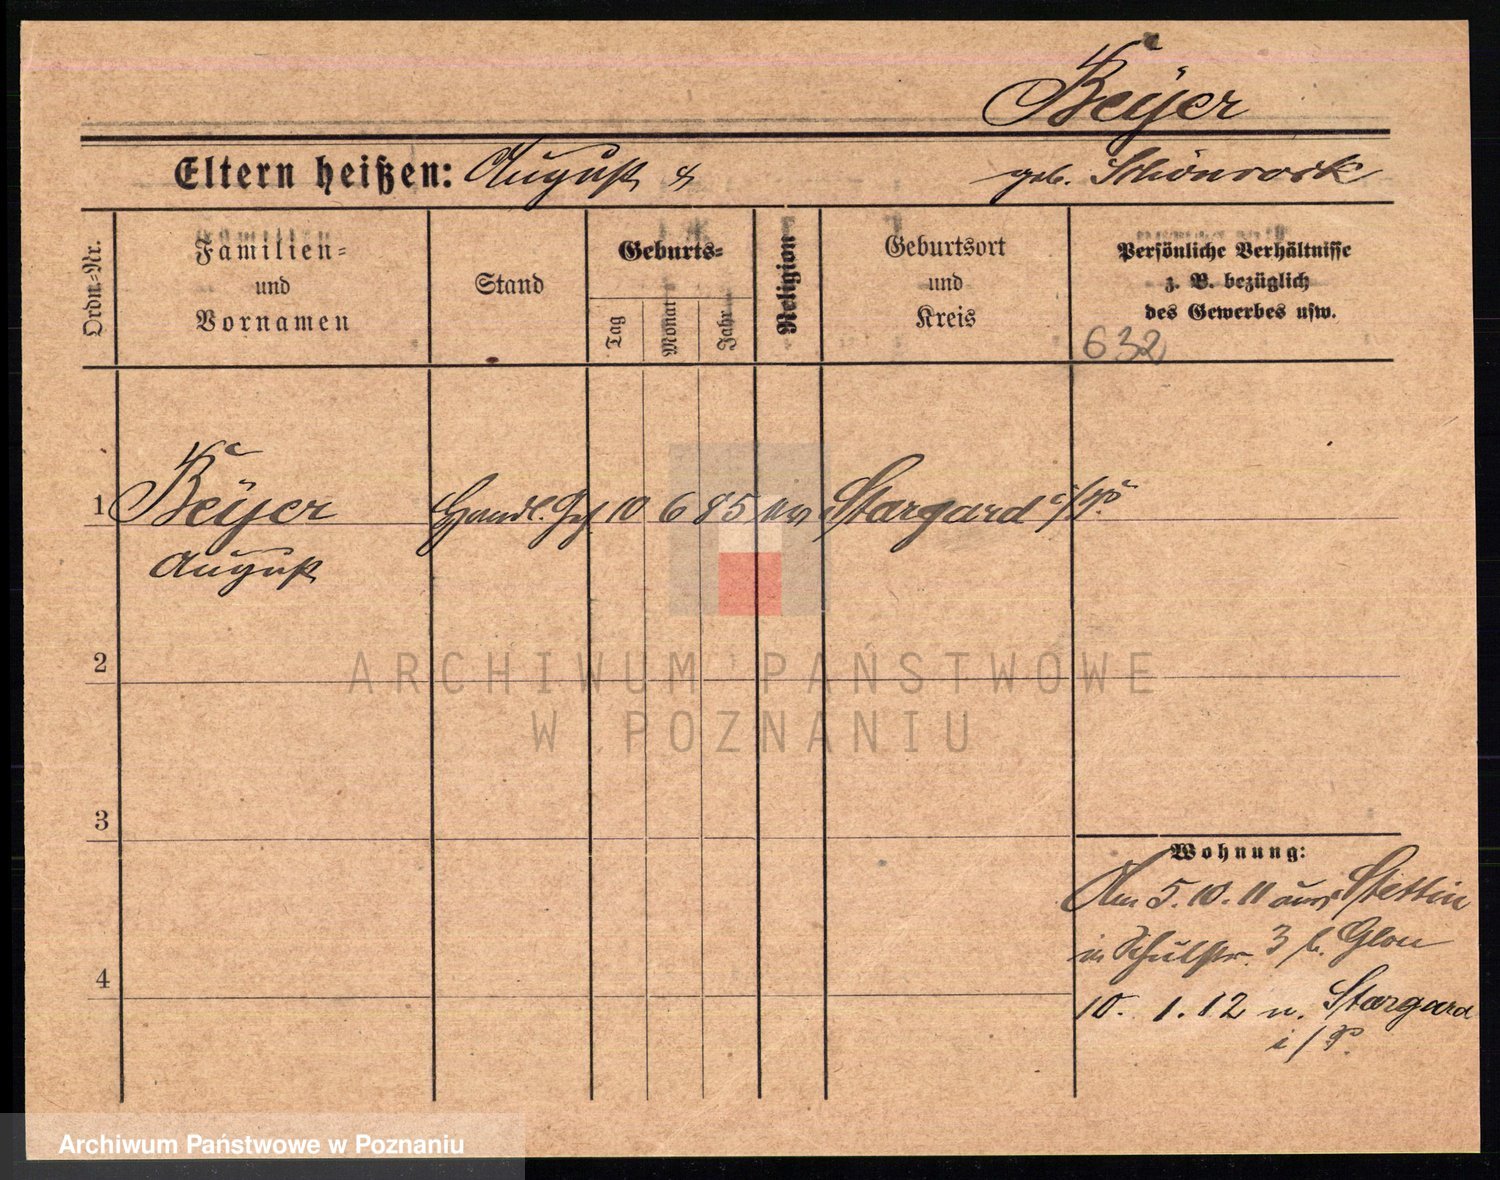 Beyer
Eltern heißen: August & geb. Schönrock
Ordn.-Nr.
Familien-
und
Vornamen
Stand
Geburts-
Tag
Monat
Jahr
Religion
Geburtsort
und
Kreis
Persönliche Verhältnisse
z. B. bezüglich
des Gewerbes usw.
632
1 Beyer Handl. 10 6 85 Stargard i/P.
August
2
3
4
Wohnung:
Am 5. 10. 11 aus Stettin
in Schulstr. 3 b.
10. 1. 12 n. Stargard
i/P.
ARCHIWUM PAŃSTWOWE
W POZNANIU
Archiwum Państwowe w Poznaniu